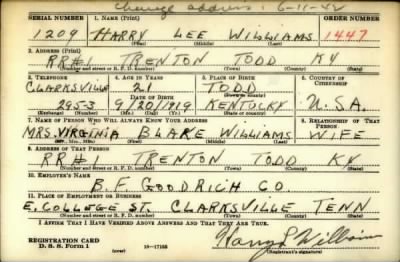 Change address: 6-11-42
SERIAL NUMBER 1. NAME (Print) ORDER NUMBER
1209 HARRY LEE WILLIAMS 1447
(First) (Middle) (Last)
2. ADDRESS (Print)
RR#1 TRENTON TODD KY
(Number and street or R. F. D. number) (Town) (County) (State)
3. TELEPHONE 4. AGE IN YEARS 5. PLACE OF BIRTH 6. COUNTRY OF CITIZENSHIP
CLARKSVILLE 21 TODD
DATE OF BIRTH
2953 9/20/1919 KENTUCKY U.S.A.
(Exchange) (Number) (Mo.) (Day) (Yr.) (State or country)
7. NAME OF PERSON WHO WILL ALWAYS KNOW YOUR ADDRESS 8. RELATIONSHIP OF THAT PERSON
MRS. VIRGINIA BLAKE WILLIAMS WIFE
(Mr., Mrs., Miss) (First) (Middle) (Last)
9. ADDRESS OF THAT PERSON
RR#1 TRENTON TODD KY
(Number and street or R. F. D. number) (Town) (County) (State)
10. EMPLOYER'S NAME
B.F. GOODRICH CO.
11. PLACE OF EMPLOYMENT OR BUSINESS
E. COLLEGE ST. CLARKSVILLE TENN
(Number and street or R. F. D. number) (Town) (County) (State)
I AFFIRM THAT I HAVE VERIFIED ABOVE ANSWERS AND THAT THEY ARE TRUE.
REGISTRATION CARD
D. S. S. Form 1 (over) 16—17105 Harry L Williams
(Registrant's signature)